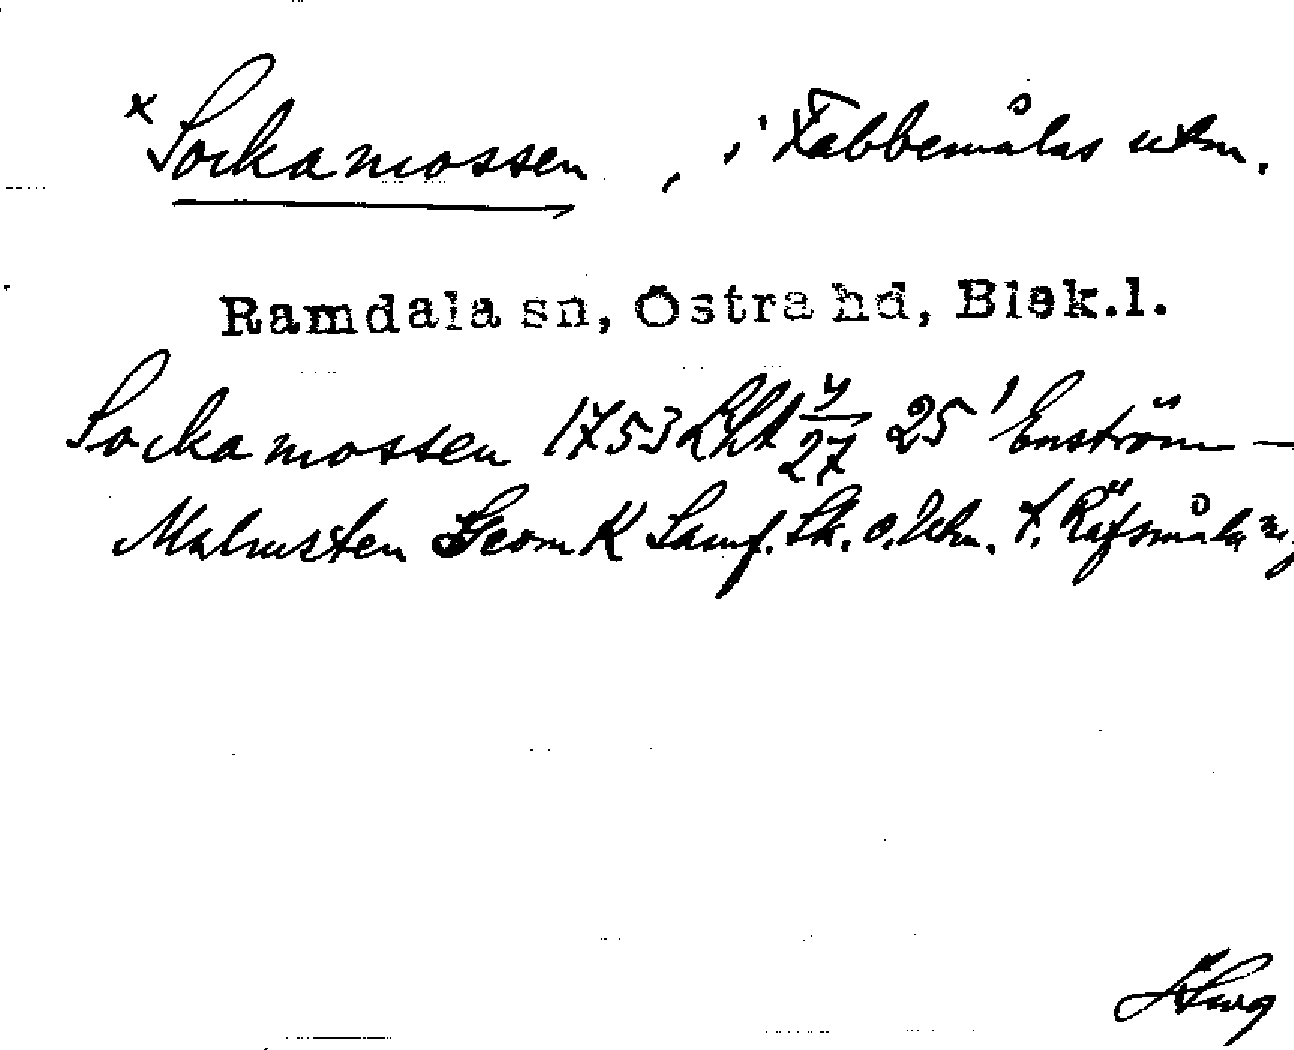 × Sockamossen, i Fäbbemålas utm.
Ramdala sn, Östra hd, Blek.l.
Sockamossen 1753 Lht 4/27 25 Enström —
Malmsten Geom K Samf. Sk. o. Utm. f. Räfsmåla